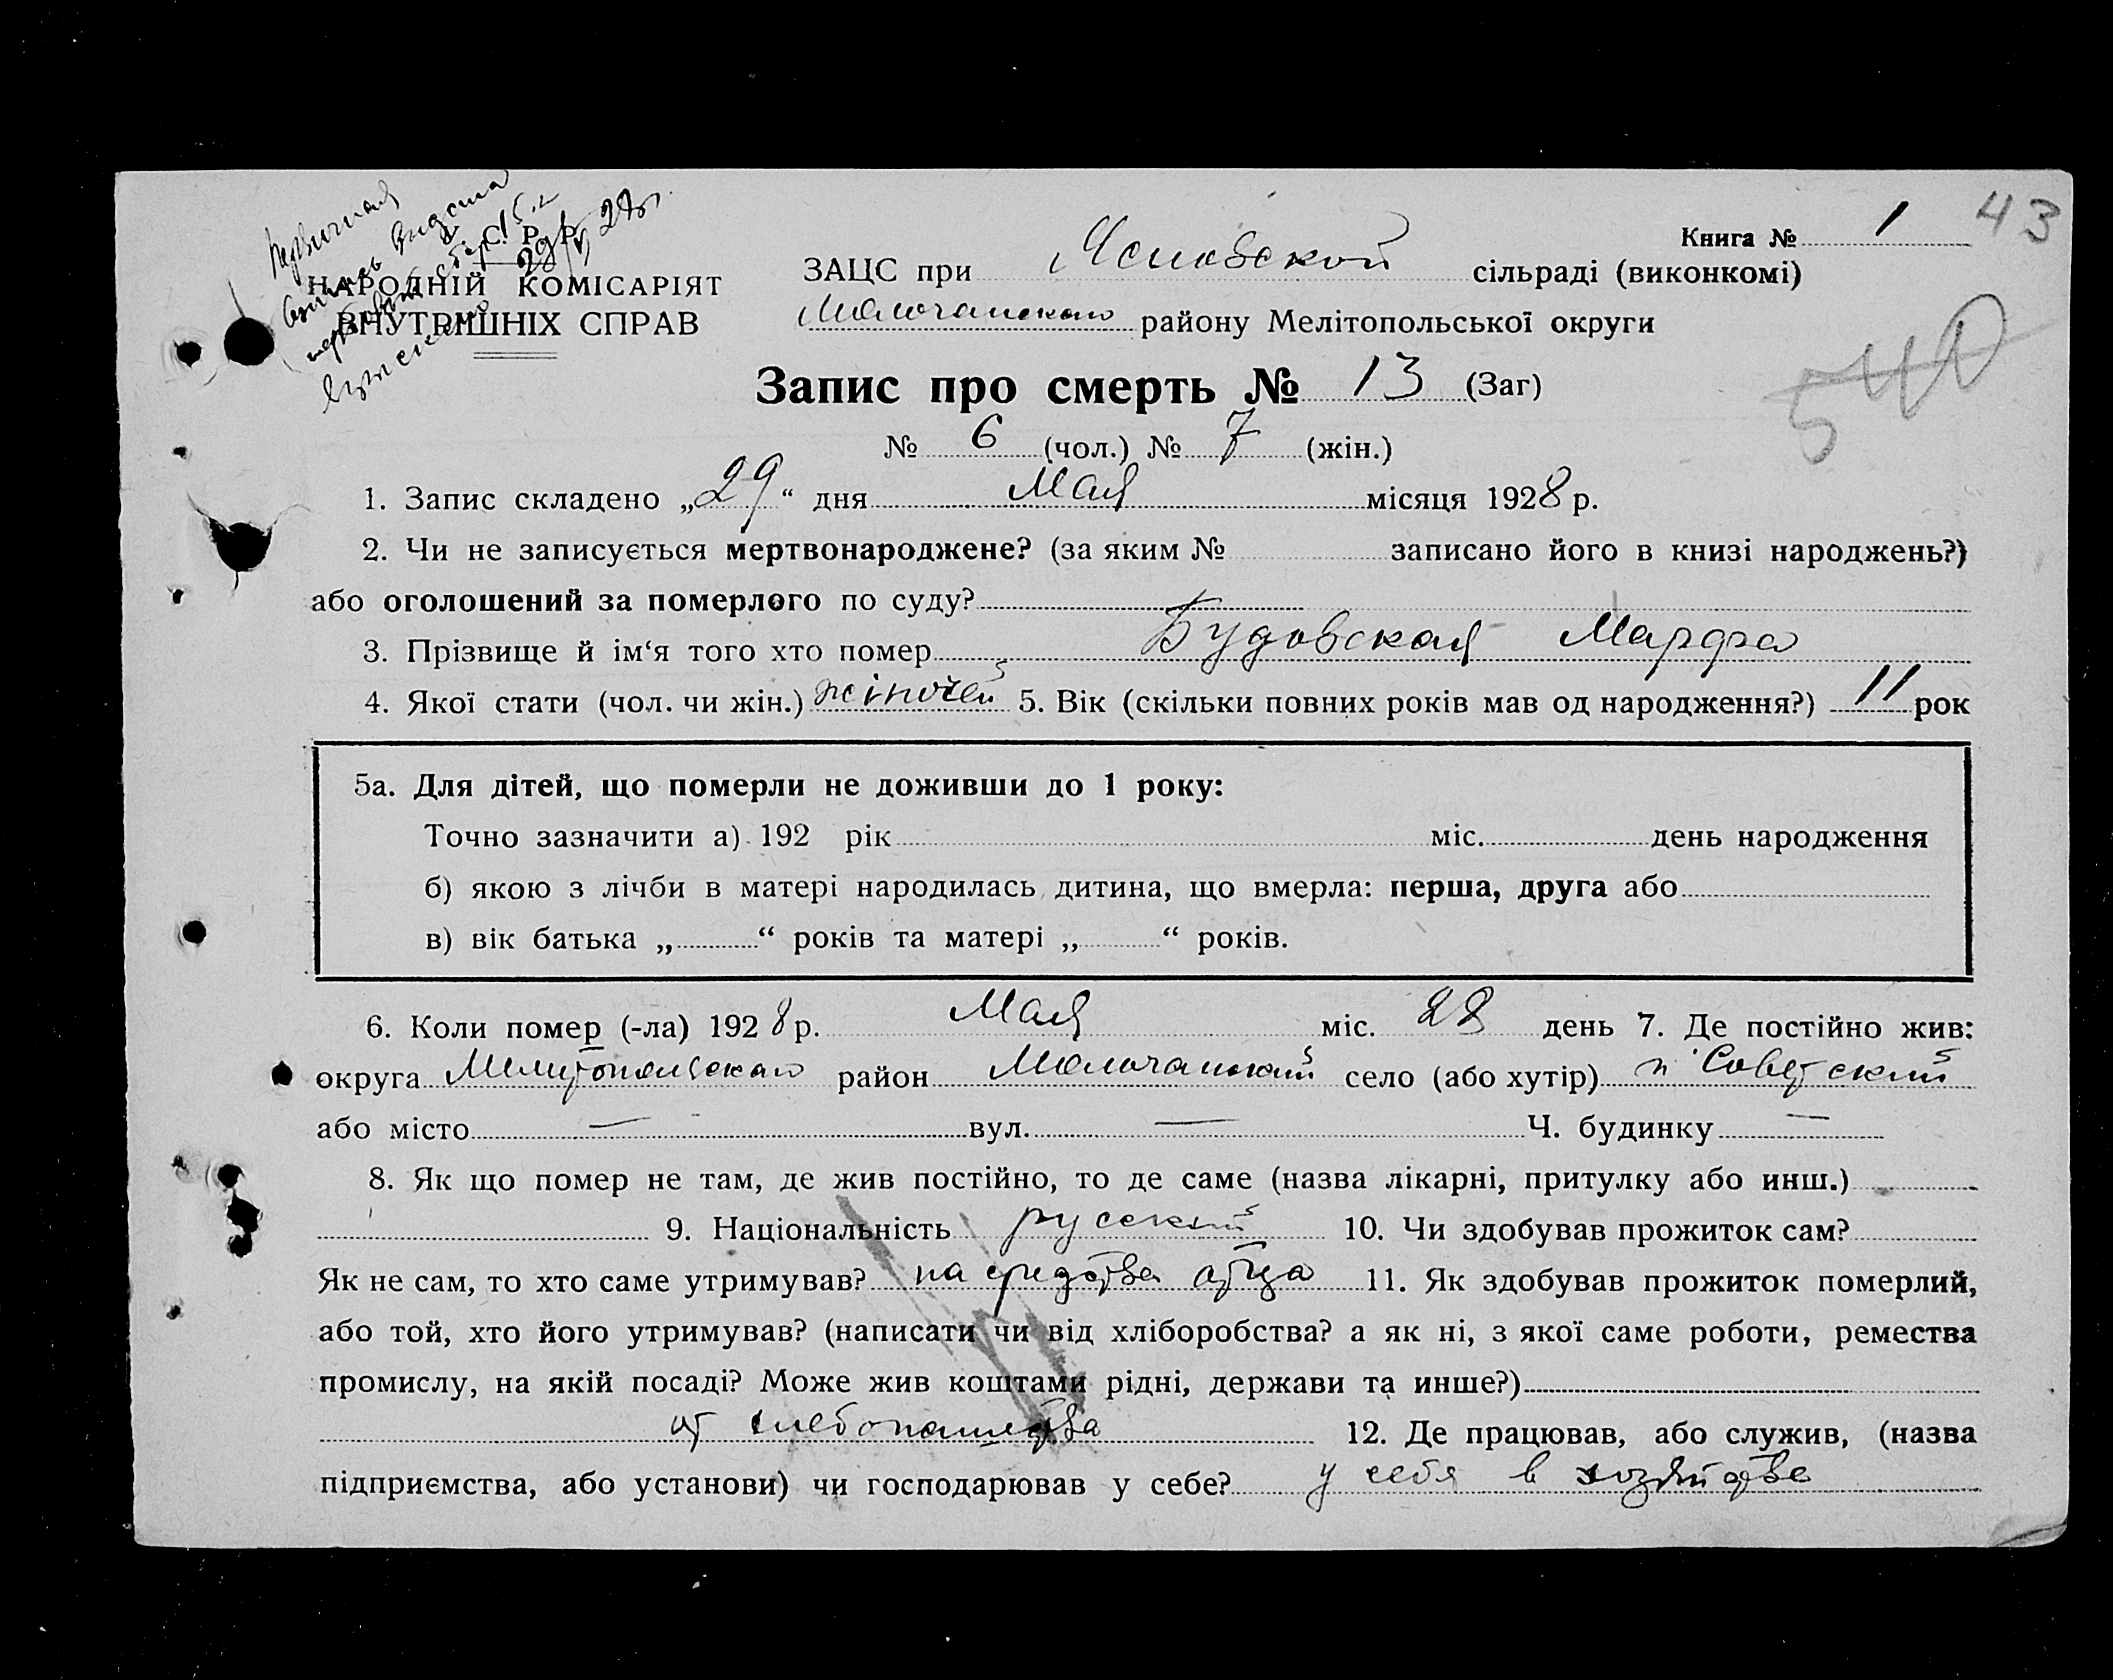 Первичная
выпись выдана
15
29/V 28г.
У. С. Р. Р.
НАРОДНІЙ КОМІСАРІЯТ
ВНУТРІШНІХ СПРАВ
Книга № 1 43
ЗАЦС при Ясновской сільраді (виконкомі)
Молочанского району Мелітопольської округи
540
Запис про смерть № 13 (Заг)
№ 6 (чол.) № 7 (жін.)
1. Запис складено „29“ дня Мая місяця 1928 р.
2. Чи не записується мертвонароджене? (за яким № записано його в книзі народжень?)
або оголошений за померлого по суду?
3. Прізвище й ім‘я того хто помер Будовская Марфа
4. Якої стати (чол. чи жін.) жіночей 5. Вік (скільки повних років мав од народження?) 11 рок
5а. Для дітей, що померли не доживши до 1 року:
Точно зазначити а) 192 рік міс. день народження
б) якою з лічби в матері народилась дитина, що вмерла: перша, друга або
в) вік батька „ “ років та матері „ “ років.
6. Коли помер (-ла) 1928 р. Мая міс. 28 день 7. Де постійно жив:
округа Мелитопольского район Молочанский село (або хутір) п. Советский
або місто — вул. — Ч. будинку —
8. Як що помер не там, де жив постійно, то де саме (назва лікарні, притулку або инш.)
9. Національність русский 10. Чи здобував прожиток сам?
Як не сам, то хто саме утримував? на средства отца 11. Як здобував прожиток померлий,
або той, хто його утримував? (написати чи від хліборобства? а як ні, з якої саме роботи, ремества
промислу, на якій посаді? Може жив коштами рідні, держави та инше?)
от хлебопашества 12. Де працював, або служив, (назва
підприємства, або установи) чи господарював у себе? у себя в хозяйстве